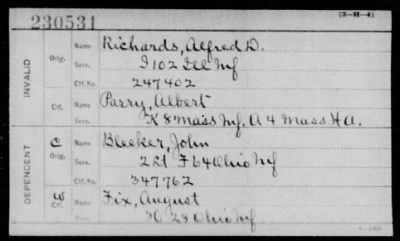 230531
(3-H-4)
INVALID
Orig.
Name Richards, Alfred D.
Serv. I 102 Ill Inf
Ctf. No. 247402
Ctf.
Name Parry, Albert
Serv. K 8 Mass Inf. A 4 Mass H A.
DEPENDENT
C
Orig.
Name Bleeker, John
Serv. F 64 Ohio Inf
Ctf. No. 347762
W
Ctf.
Name Fix, August
Serv. 28 Ohio Inf